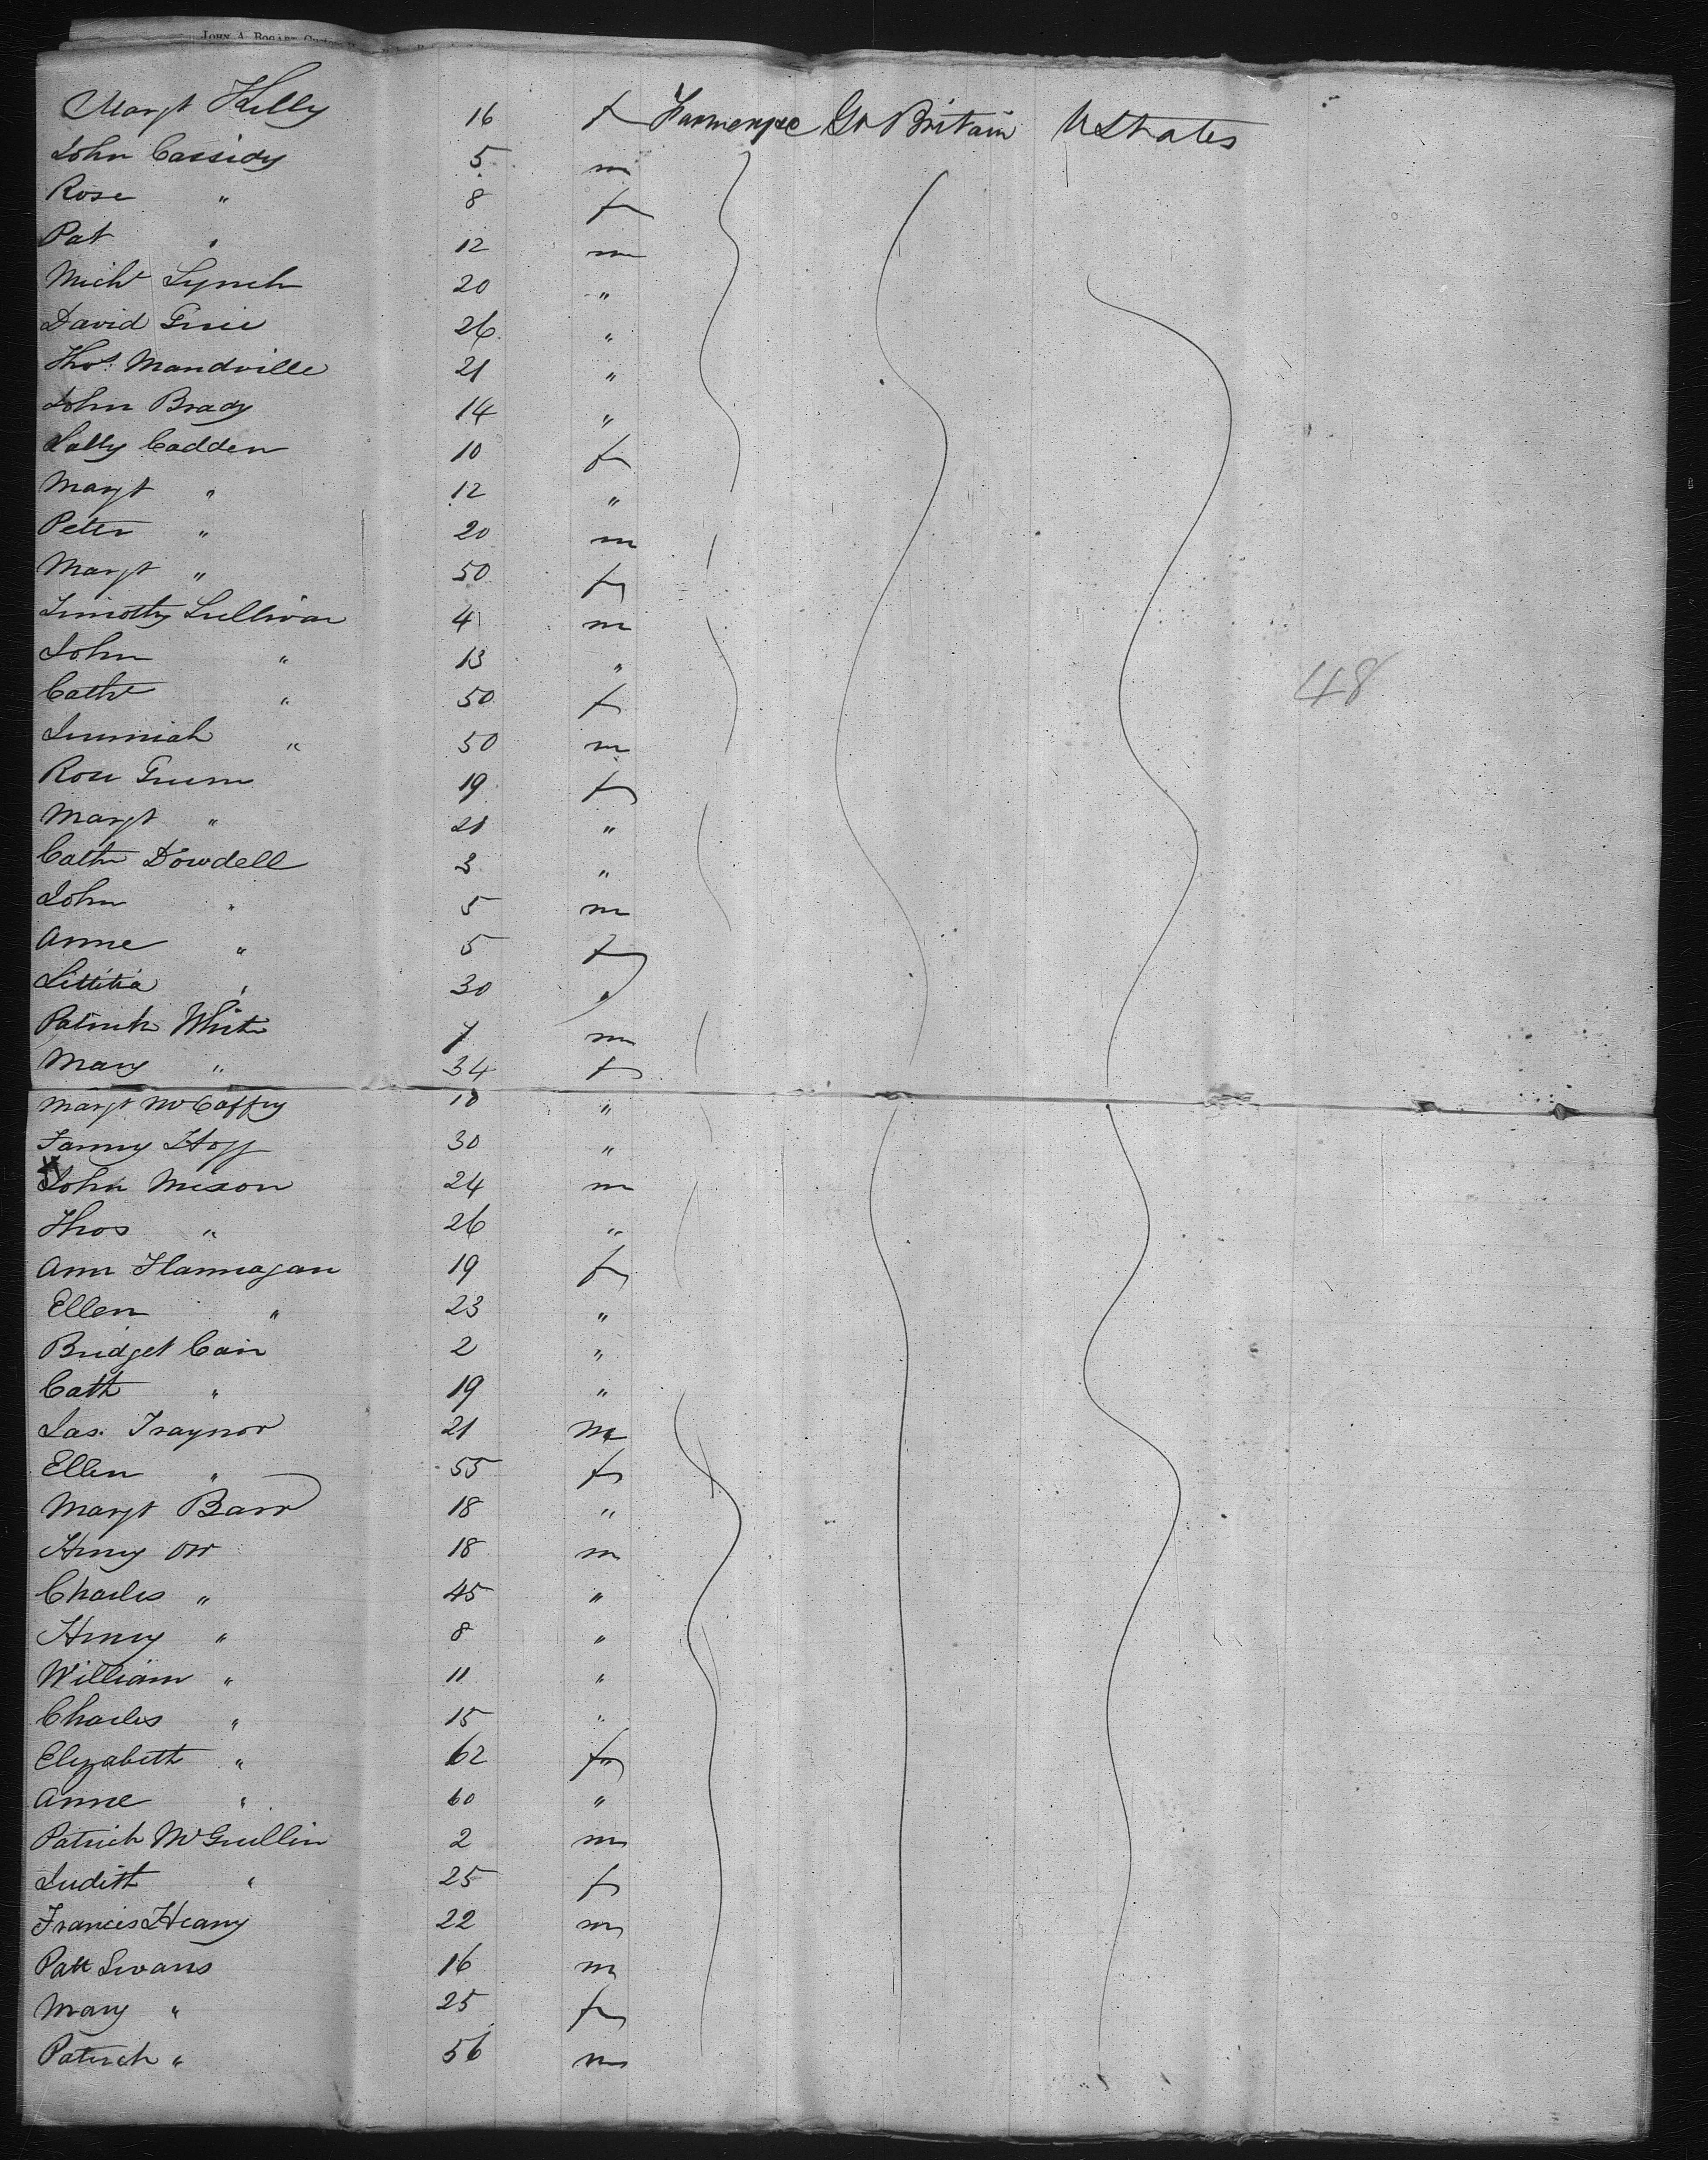 JOHN A. BOGART
Margt Kelly 16 f Gt Britain U States
John Cassidy 5 m
Rose " 8 f
Pat " 12 m
Michl Lynch 20 "
David 26 "
Thos. Mandville 21 "
John Brady 14 "
Sally Cadden 10 f
Margt " 12 "
Peter " 20 m
Margt " 50 f
Timothy Sullivan 4 m
John " 13 "
Cathe " 50 f
Jeremiah " 50 m
Rose Green 19 f
Margt " 21 "
Cathe Dowdell 3 "
John " 5 m
Anne " 5 f
Littitia " 30 "
Patrick White 7 m
Mary " 34 f
Margt McCaffry 10 "
Fanny Hogg 30 "
John Mixon 24 m
Thos " 26 "
Ann Flannagan 19 f
Ellen " 23 "
Bridget Cain 2 "
Cath " 19 "
Jas. Traynor 21 m
Ellen " 55 f
Margt Barr 18 "
Henry Orr 18 m
Charles " 45 "
Henry " 8 "
William " 11 "
Charles " 15 "
Elizabeth " 62 f
Anne " 60 "
Patrick 2 m
Judith " 25 f
Francis Heany 22 m
Patt Swans 16 m
Mary " 25 f
Patrick " 56 m
48